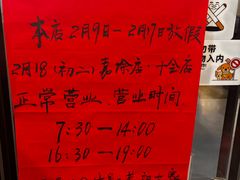 本店2月9日-2月17日放假
2月18(初二)嘉除店·十全店
正常营业、营业时间
7:30—14:00
16:30—19:00